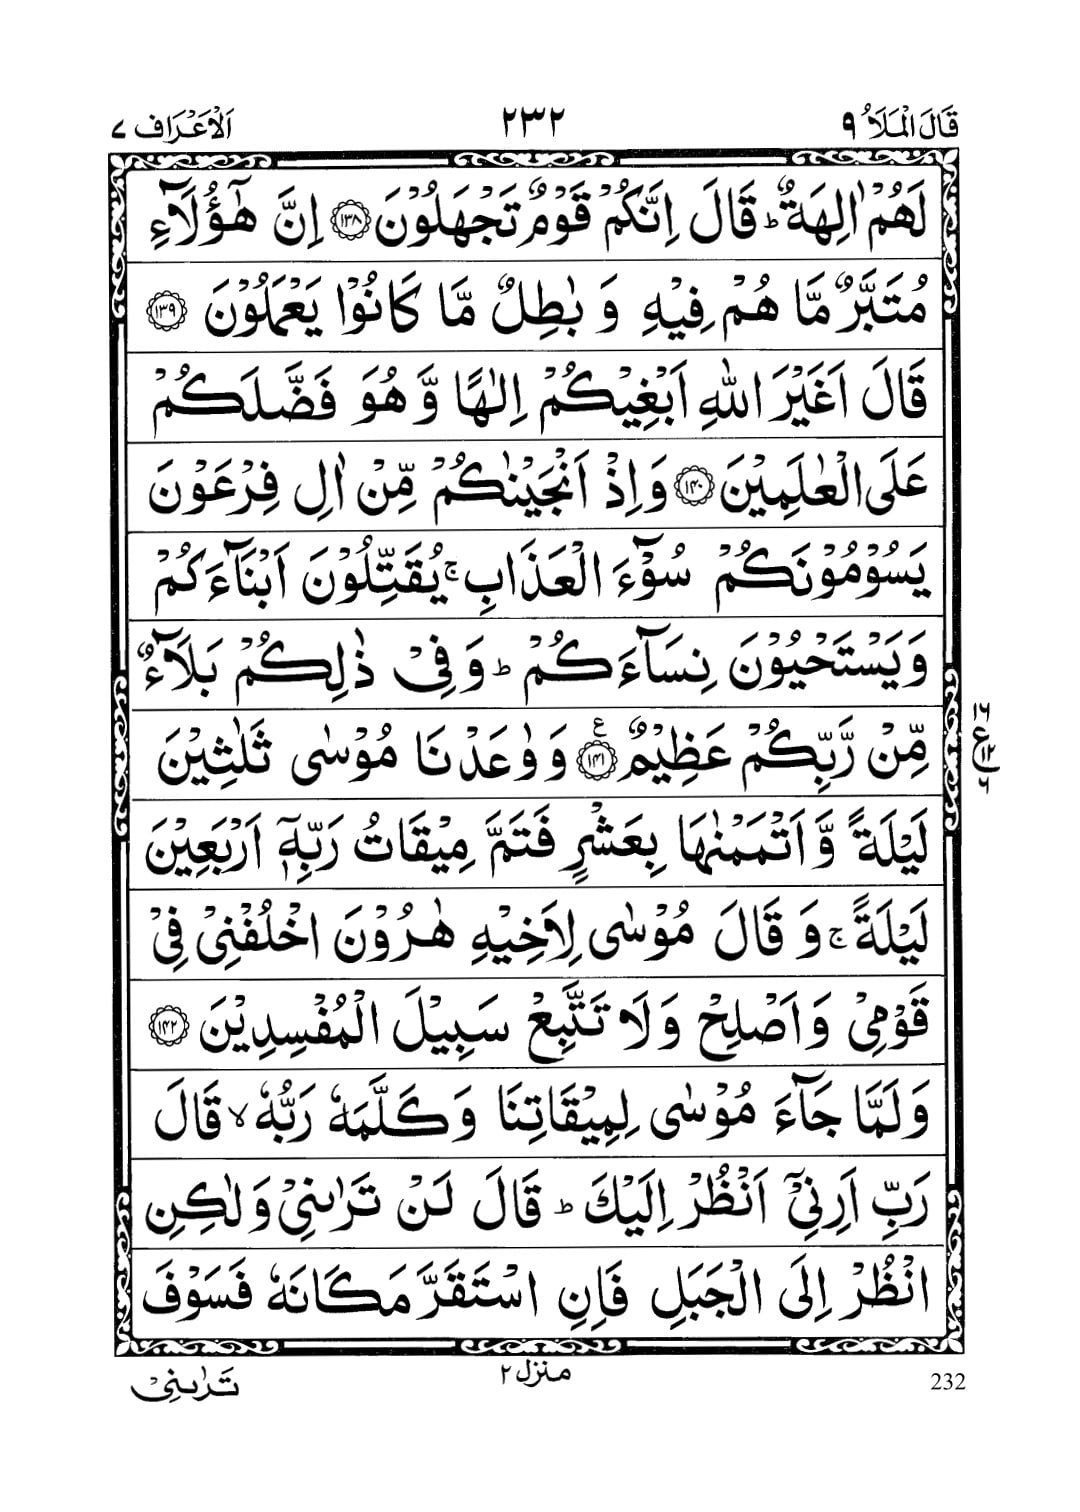 قَالَ الْمَلَاُ ٩
٢٣٢
اَلْاَعْرَاف ٧
لَهُمْ اٰلِهَةٌ ؕ قَالَ اِنَّكُمْ قَوْمٌ تَجْهَلُوْنَ ﴿۱۳۸﴾ اِنَّ هٰۤؤُلَآءِ
مُتَبَّرٌ مَّا هُمْ فِيْهِ وَ بٰطِلٌ مَّا كَانُوْا يَعْمَلُوْنَ ﴿۱۳۹﴾
قَالَ اَغَيْرَ اللّٰهِ اَبْغِيْكُمْ اِلٰهًا وَّ هُوَ فَضَّلَكُمْ
عَلَى الْعٰلَمِيْنَ ﴿۱۴۰﴾ وَاِذْ اَنْجَيْنٰكُمْ مِّنْ اٰلِ فِرْعَوْنَ
يَسُوْمُوْنَكُمْ سُوْٓءَ الْعَذَابِ ۚ يُقَتِّلُوْنَ اَبْنَآءَكُمْ
وَيَسْتَحْيُوْنَ نِسَآءَكُمْ ؕ وَفِيْ ذٰلِكُمْ بَلَآءٌ
مِّنْ رَّبِّكُمْ عَظِيْمٌ ﴿۱۴۱﴾ ع وَوٰعَدْنَا مُوْسٰى ثَلٰثِيْنَ
لَيْلَةً وَّاَتْمَمْنٰهَا بِعَشْرٍ فَتَمَّ مِيْقَاتُ رَبِّهٖۤ اَرْبَعِيْنَ
لَيْلَةً ۚ وَ قَالَ مُوْسٰى لِاَخِيْهِ هٰرُوْنَ اخْلُفْنِيْ فِيْ
قَوْمِيْ وَاَصْلِحْ وَلَا تَتَّبِعْ سَبِيْلَ الْمُفْسِدِيْنَ ﴿۱۴۲﴾
وَلَمَّا جَآءَ مُوْسٰى لِمِيْقَاتِنَا وَكَلَّمَهٗ رَبُّهٗ ۙ قَالَ
رَبِّ اَرِنِيْۤ اَنْظُرْ اِلَيْكَ ؕ قَالَ لَنْ تَرٰىنِيْ وَلٰكِنِ
انْظُرْ اِلَى الْجَبَلِ فَاِنِ اسْتَقَرَّ مَكَانَهٗ فَسَوْفَ
١٦
ع
١٢
٦
تَرٰىنِيْ
منزل ٢
232